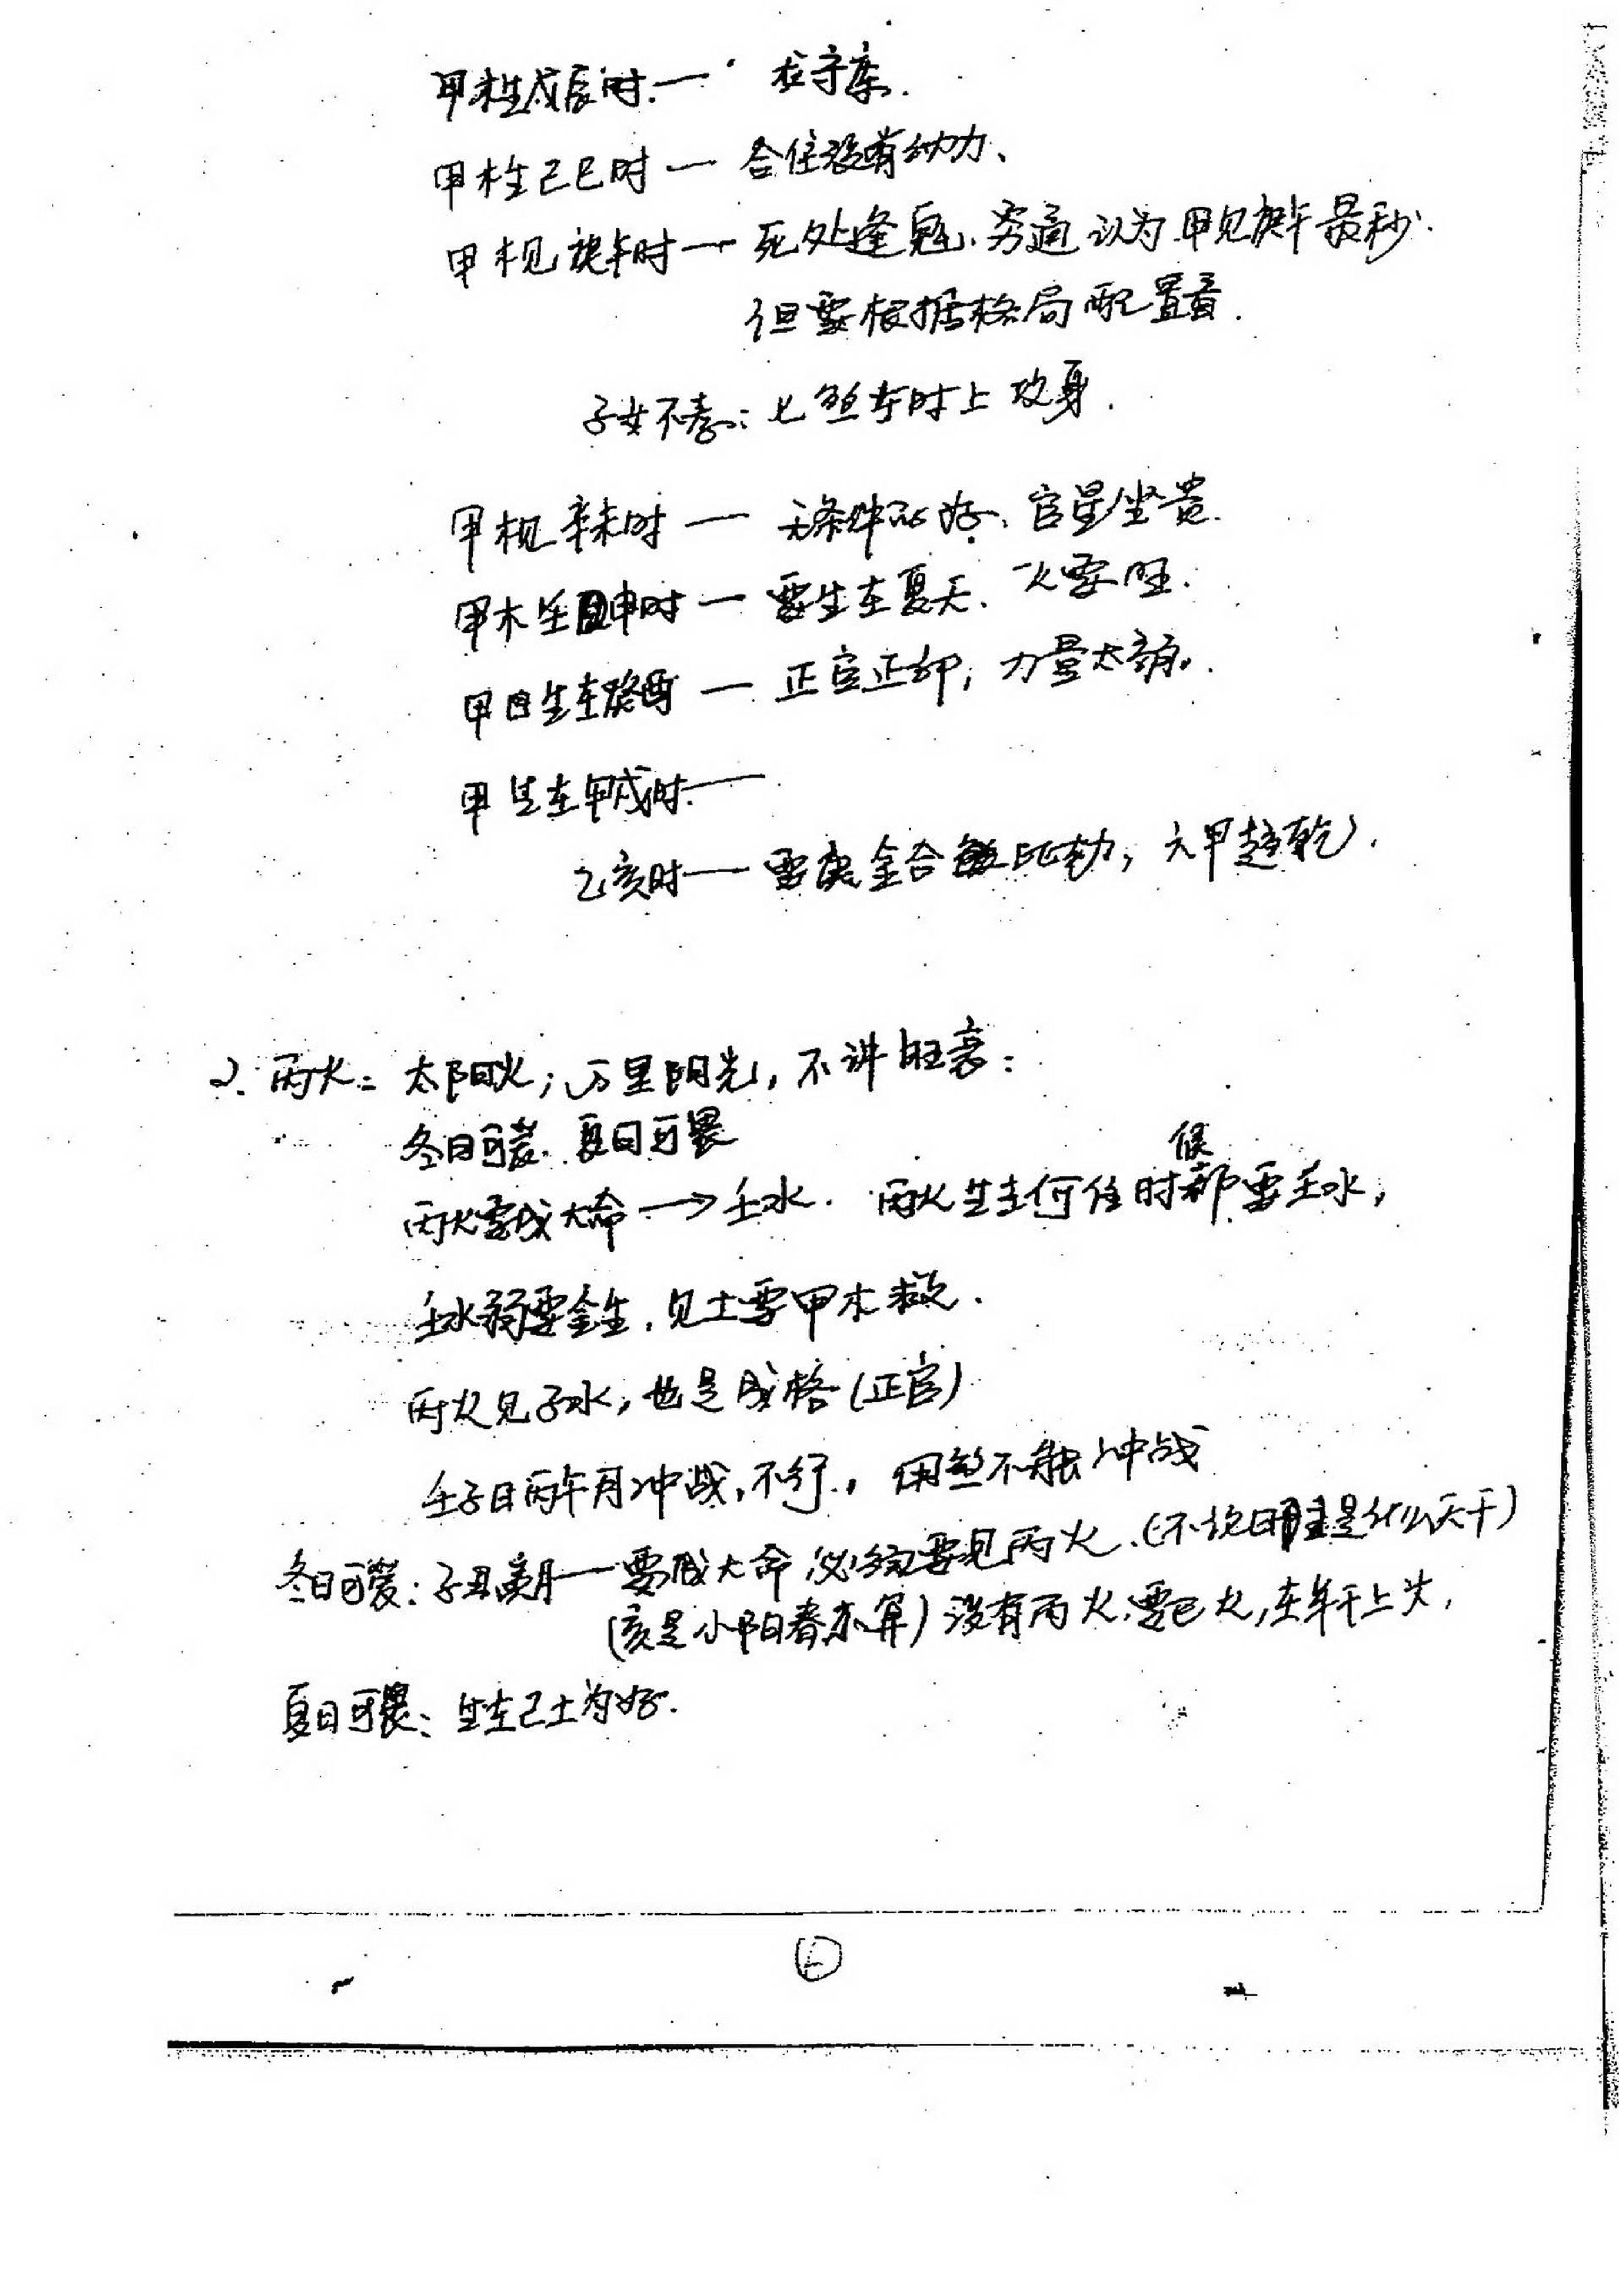 甲木生戊辰时一 木守库.
甲木生己巳时一 合住没有动力、
甲木见庚午时一 死处逢鬼、穷通认为甲见庚午最秒.
但要根据格局配置看.
子女不孝: 七煞在时上攻身.
甲木见辛未时一 无条件的好、官星坐贵.
甲木生壬申时一 要生在夏天、火要旺.
甲日生在癸酉一 正官正印, 力量太弱.
甲生在甲戌时一
乙亥时一 要庚金合 比劫, 六甲趋乾.
2. 丙火: 太阳火; 万里阳光, 不讲旺衰:
冬日可爱. 夏日可畏
丙火要成大命 → 壬水. 丙火生在何任时候都要壬水,
壬水弱要金生, 见土要甲木救.
丙火见子水, 也是成格(正官)
壬子日丙午月冲战, 不行., 用煞不能冲战
冬日可爱: 子丑亥月一要成大命必须要见丙火. (不论日主是什么天干)
(亥是小阳春亦算) 没有丙火, 要巳火, 在年干上火,
夏日可畏: 生在己土为好.